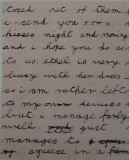 tred out of them.
i send you 200
kisses night and morning
and i hope you do so
to us. ethel is very
busy with her dress
so i am rather left
to my own devices
but i manage fairly
well
manages to
squeeze in a